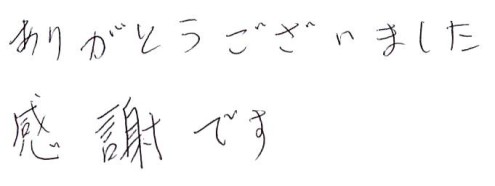 ありがとうございました
感謝です